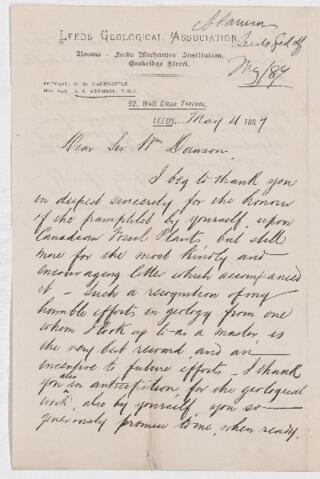 Adamson
Leeds Geol
May /87
LEEDS GEOLOGICAL ASSOCIATION
Rooms - Leeds Mechanics' Institution,
Cookridge Street.
HON. SEC. S. A. ADAMSON, F.G.S.
52, Well Close Terrace,
LEEDS, May 11 1887
Dear Sir Wm Dawson.
I beg to thank you
in deepest sincerity for the honour
of the pamphlet by yourself upon
Canadian Fossil Plants, but still
more for the most kindly and
encouraging letter which accompanied
it - Such a recognition of my
humble efforts in geology from one
whom I look up to as a master, is
the very best reward and an
incentive to future efforts - I thank
you also in anticipation for the geological
work, also by yourself, you so
generously promise to me, when ready.